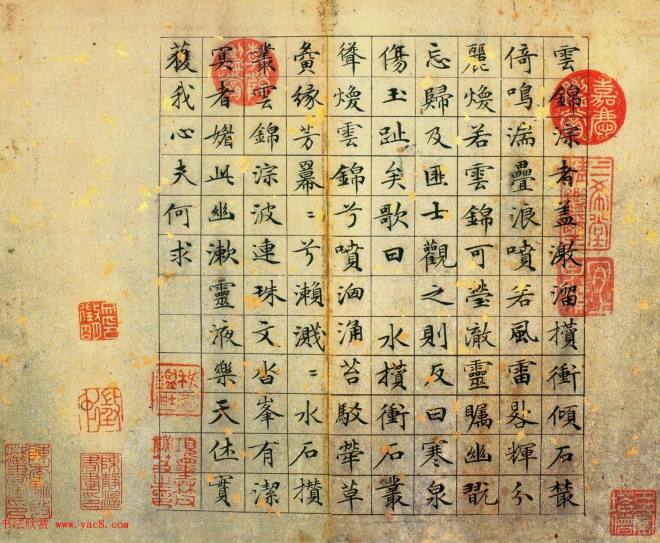 雲錦淙者蓋激溜攢衝傾石叢
倚鳴湍疊浪噴若風雷晷輝分
麗煥若雲錦可瑩澈靈矚幽翫
忘歸及匪士觀之則反曰寒泉
傷玉趾矣歌曰　水攢衝石叢
聳煥雲錦兮噴洶涌苔駮犖草
夤緣芳冪〻兮瀨濺〻水石攢
叢雲錦淙波連珠文沓峯有潔
冥者媚此幽漱靈液樂天休實
獲我心夫何求
三希堂精鑑璽
书法欣赏 www.yac8.com